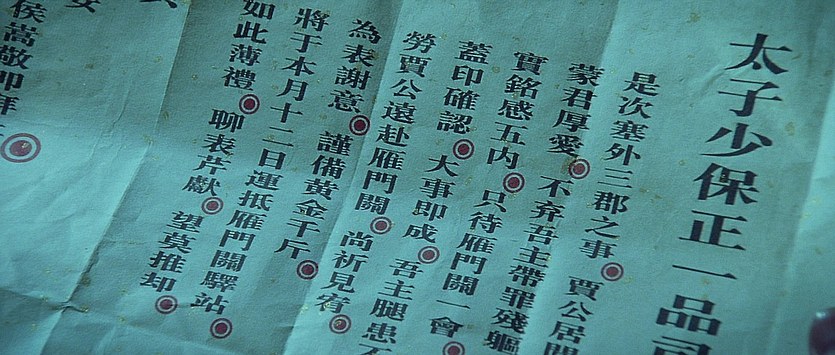 太子少保正一品司
是次塞外三郡之事 賈公居間
蒙君厚愛 不弃吾主帶罪殘軀
實銘感五內 只待雁門關一會
蓋印確認 大事即成 吾主腿患不
勞賈公遠赴雁門關 尚祈見宥
為表謝意 謹備黃金千斤
將于本月十二日運抵雁門關驛站
如此薄禮 聊表芹獻 望莫推却
侯嵩敬即拜